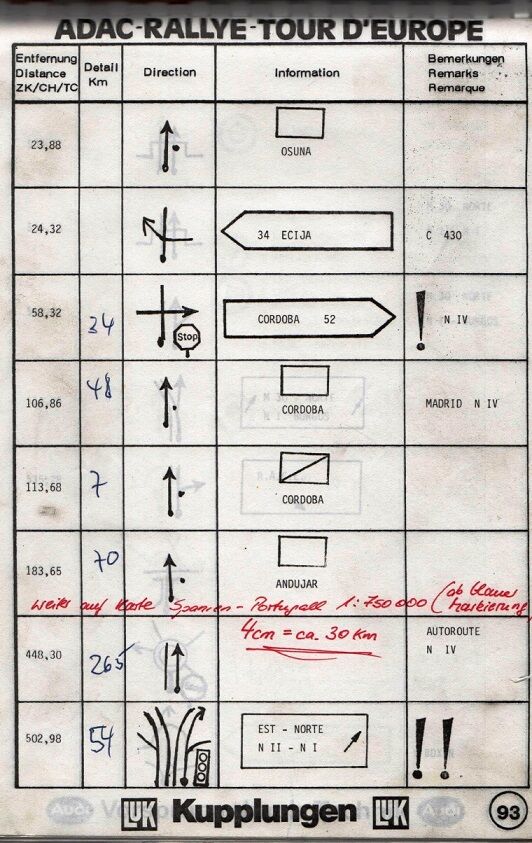 ADAC-RALLYE-TOUR D'EUROPE
Entfernung Distance ZK/CH/TC
Detail Km
Direction
Information
Bemerkungen Remarks Remarque
23,88
OSUNA
24,32
34 ECIJA
C 430
58,32
34
Stop
CORDOBA 52
! N IV
106,86
48
CORDOBA
MADRID N IV
113,68
7
CORDOBA
183,65
70
ANDUJAR
weiter auf Karte Spanien - Portugall 1:750 000 (ab blauer Markierung)
4cm = ca. 30 Km
448,30
265
AUTOROUTE
N IV
502,98
54
EST - NORTE
N II - N I
!!
LUK Kupplungen LUK 93